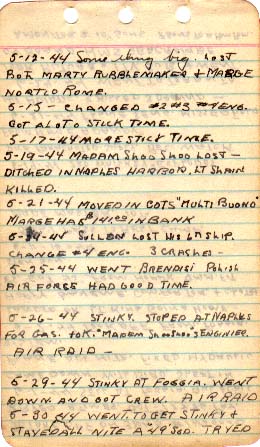 5-12-44 Something big. Lost
Both Marty Rubblemaker & Marge
North Rome.
5-15 - Changed #2 #3 #4 eng.
Got a lot o stick time.
5-17-44 More stick time.
5-19-44 Madam Shoo Shoo lost -
ditched in Naples Harbor, Lt Shain
killed.
5-21-44 Moved in cots "Multi Buono"
Marge has $141.00 in bank
5-24-44 Sullen lost his 6th ship.
Change #4 eng. 3 crashes -
5-25-44 went Brendisi Polish
Air Force had good time.
5-26-44 Stinky stoped at Naples
for gas. to K. "Madem Shoo Shoo's" enginier.
Air raid -
5-29-44 Stinky at Foggia. Went
down and got crew. Air raid
5-30 44 went to get Stinky &
stayed all nite a "49" Sqd. tryed